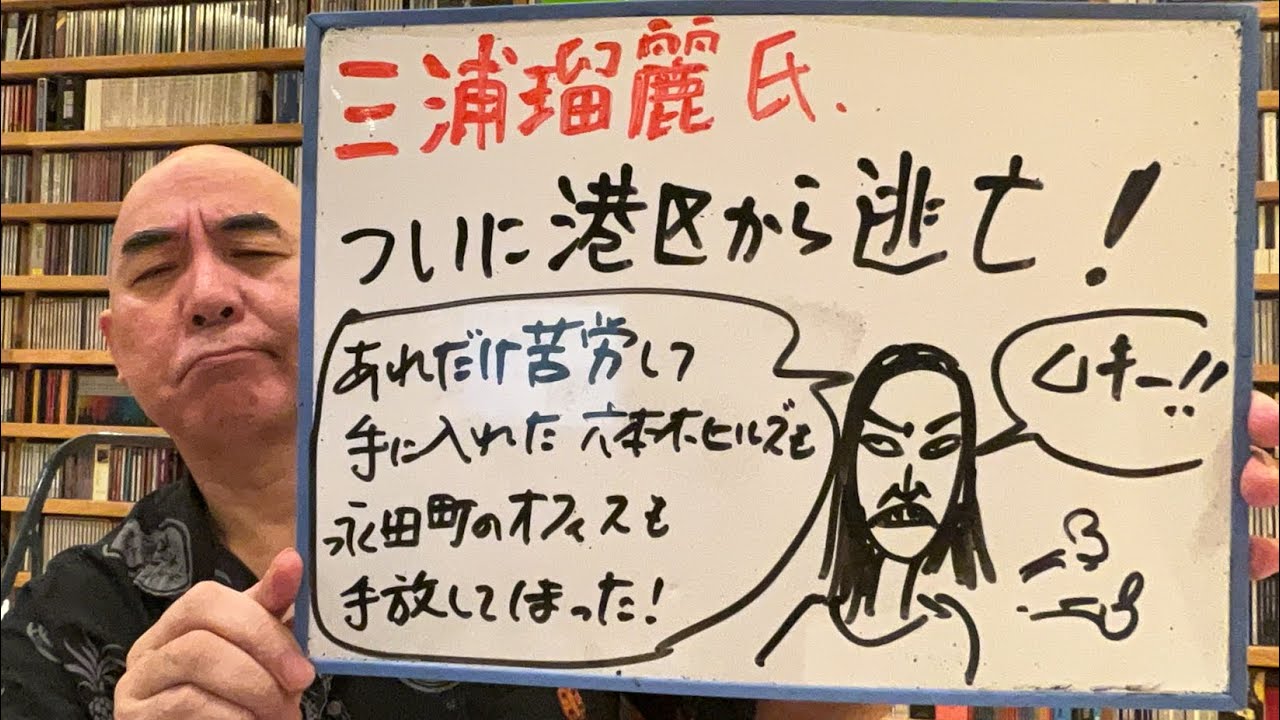 三浦瑠麗氏.
ついに港区から逃亡!
あれだけ苦労して
手に入れた六本木ヒルズも
永田町のオフィスも
手放してしまった!
ムキー!!